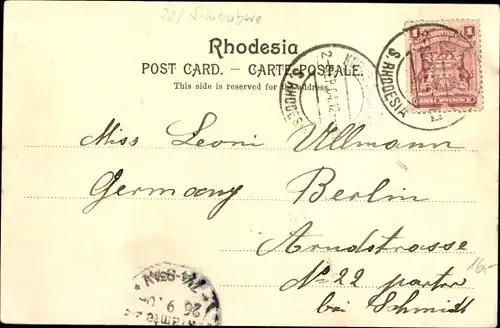 22/ Simbabwe
Rhodesia
POST CARD. – CARTE-POSTALE.
This side is reserved for the address.
1
S. RHODESIA
S. RHODES
Miss Leoni Ullmann
Germany Berlin
Arndstrasse
No 22 parterre
bei Schmidt
16.-
26 9